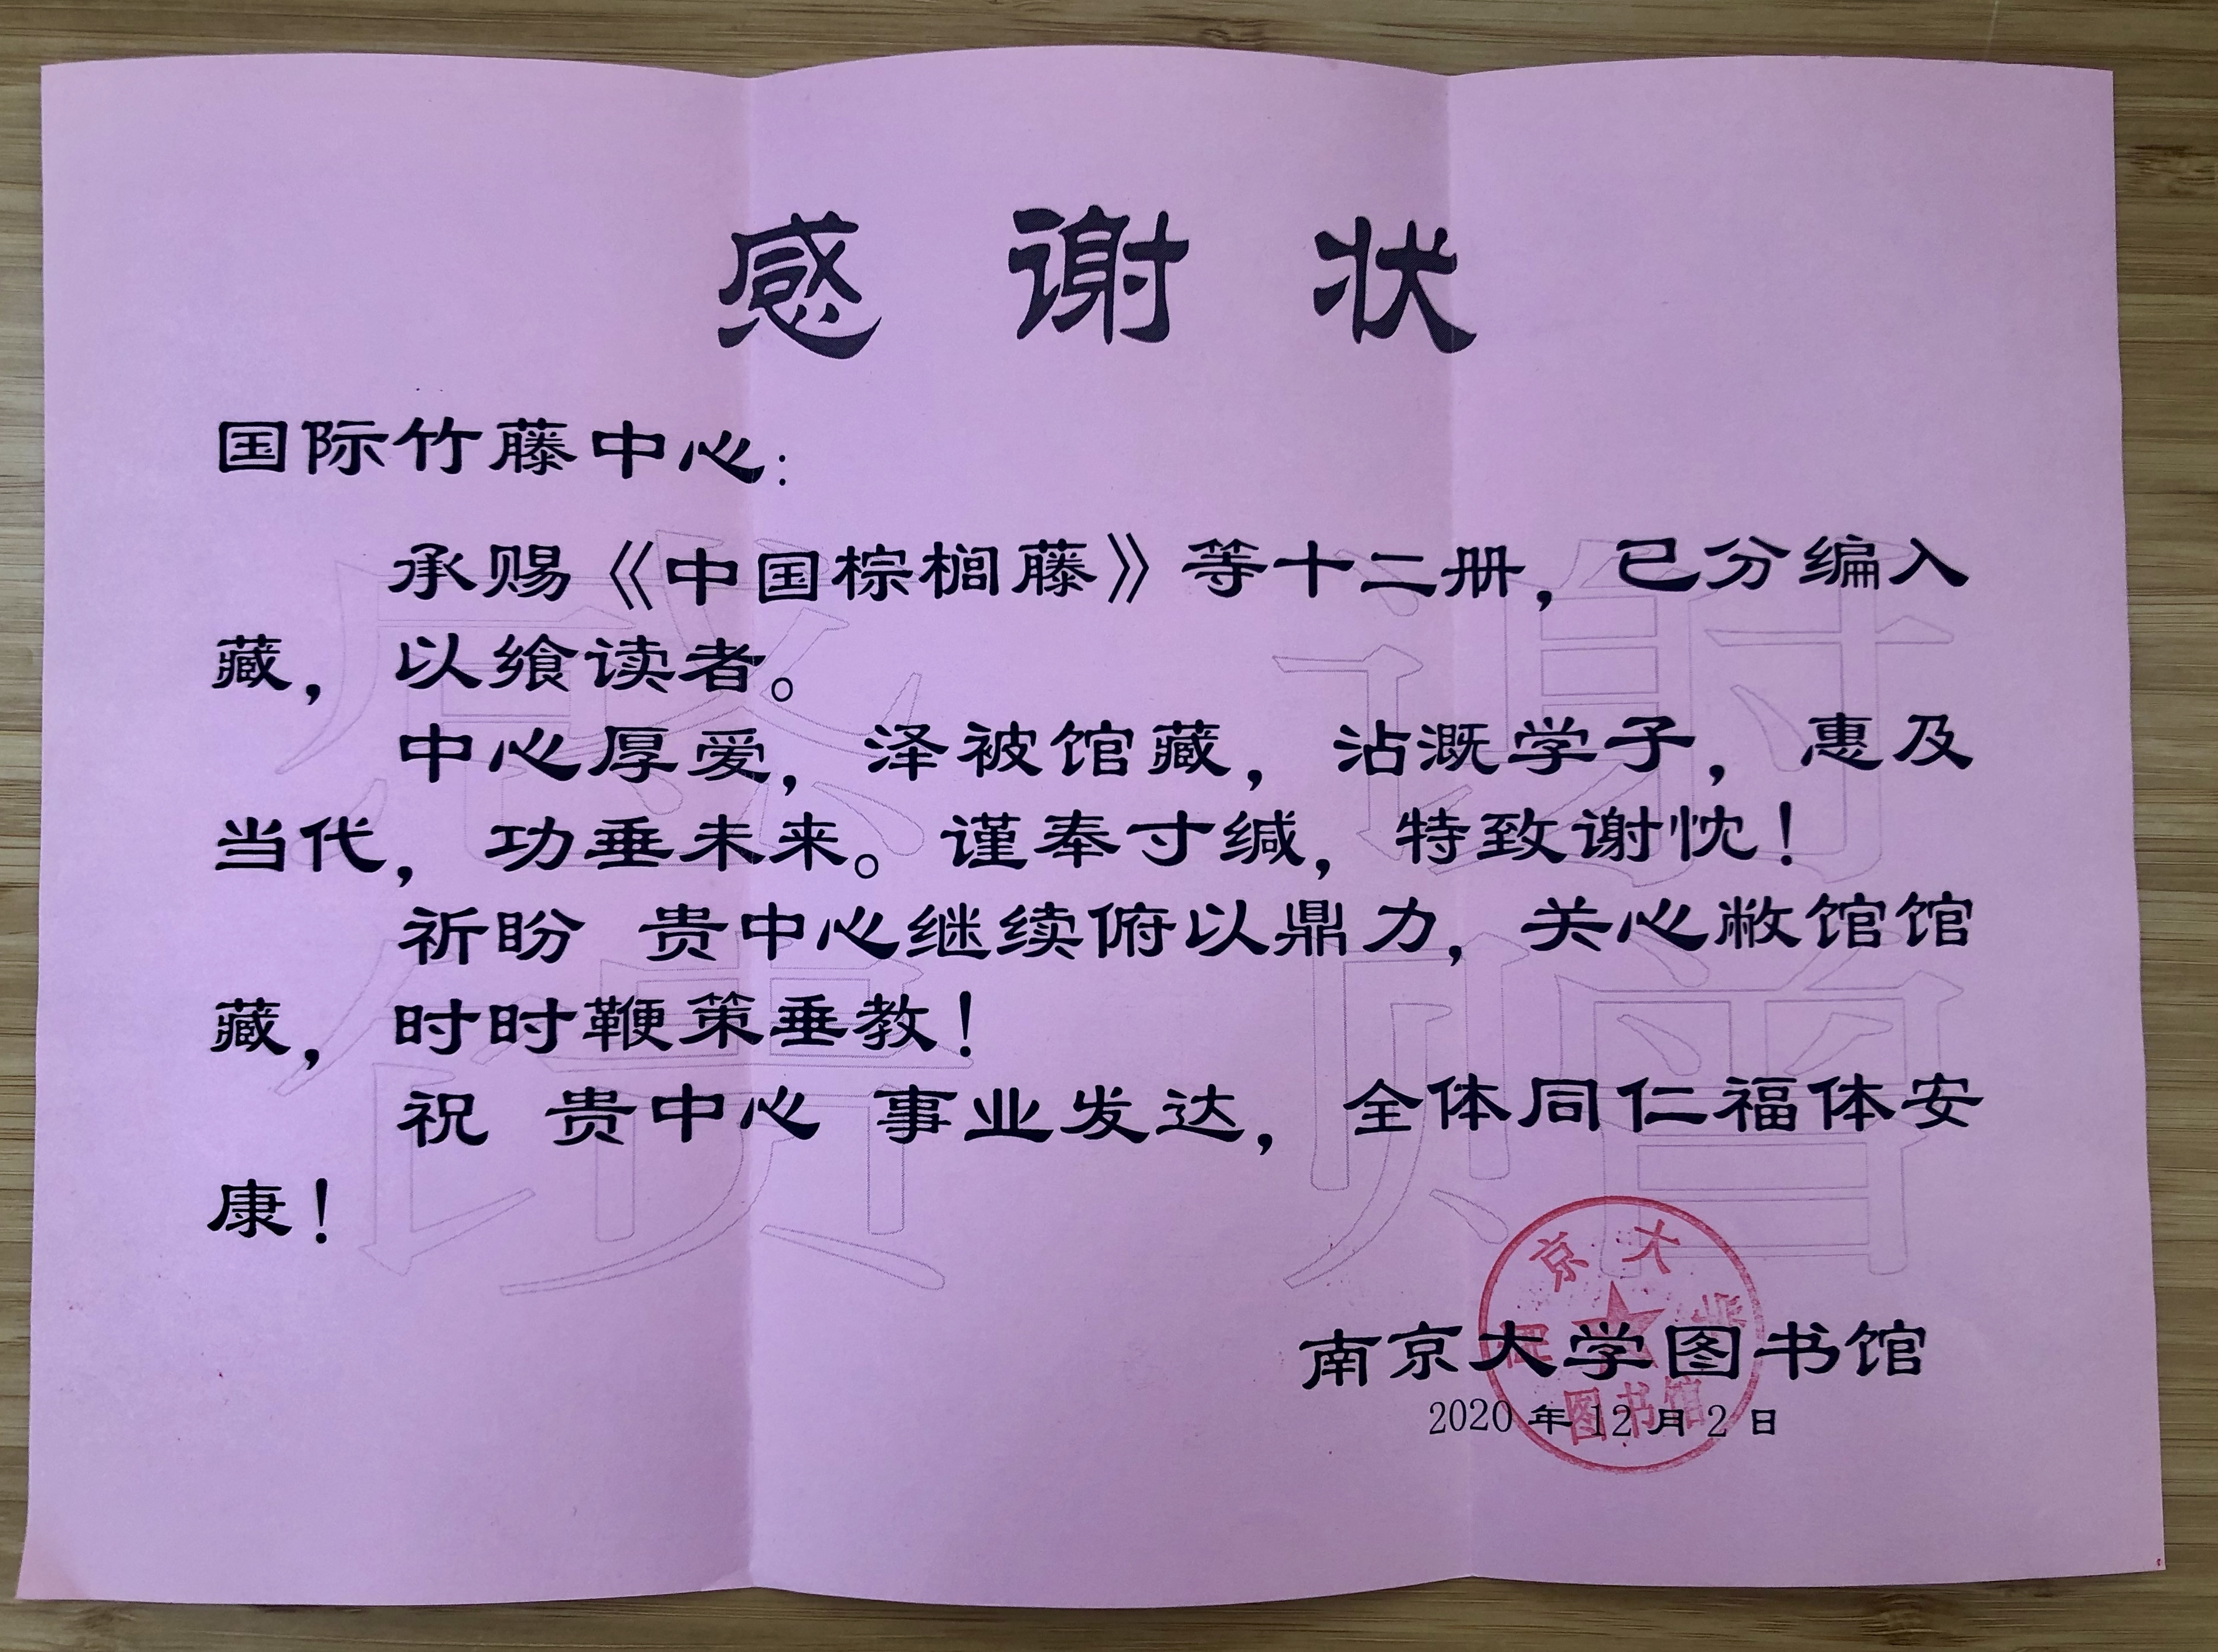 感谢状
国际竹藤中心：
承赐《中国棕榈藤》等十二册，已分编入
藏，以飨读者。
中心厚爱，泽被馆藏，沾溉学子，惠及
当代，功垂未来。谨奉寸缄，特致谢忱！
祈盼 贵中心继续俯以鼎力，关心敝馆馆
藏，时时鞭策垂教！
祝 贵中心 事业发达，全体同仁福体安
康！
南京大学图书馆
2020年12月2日
感谢
馈赠
京大
图书馆